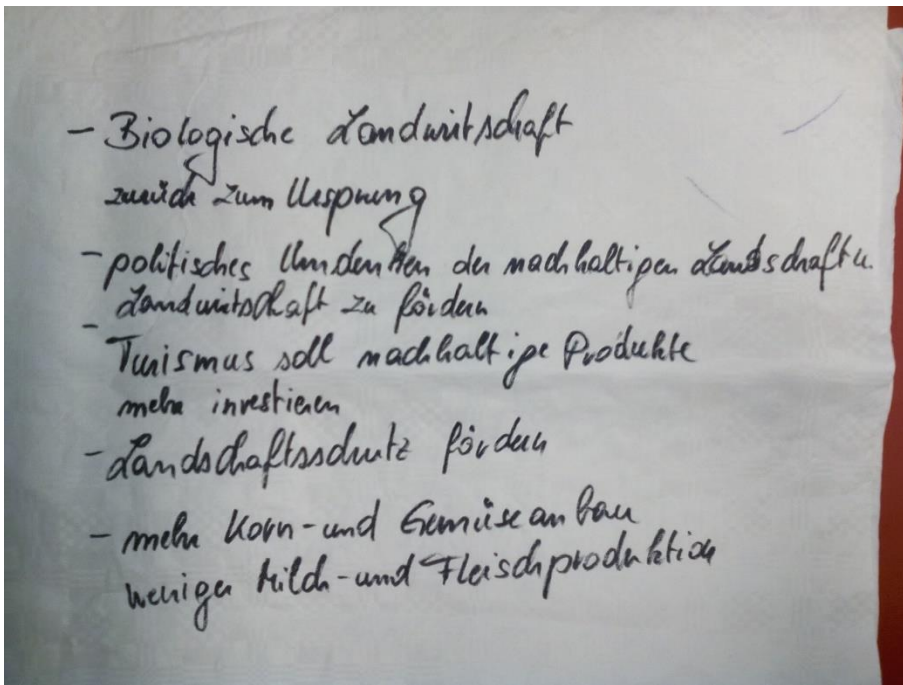 - Biologische Landwirtschaft
zurück zum Urspnung
- politisches Umdenken der nachhaltigen Landschaft u.
Landwirtschaft zu fördern
- Turismus soll nachhaltige Produkte
mehr investieren
- Landschaftsschutz fördern
- mehr Korn- und Gemüseanbau
weniger Milch- und Fleischproduktion